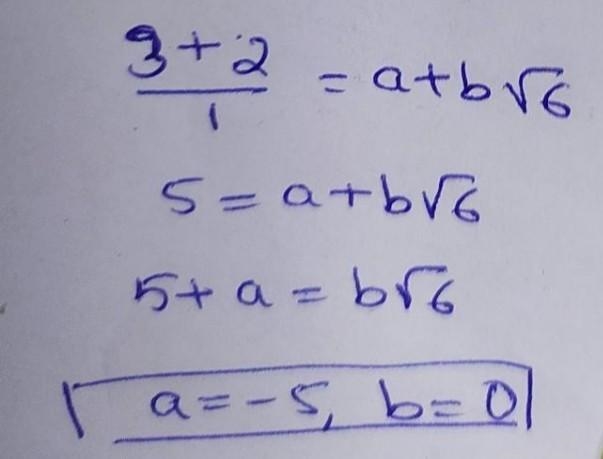 3+2/1 = a+b√6
5 = a+b√6
5+ a = b√6
a=-5, b=0